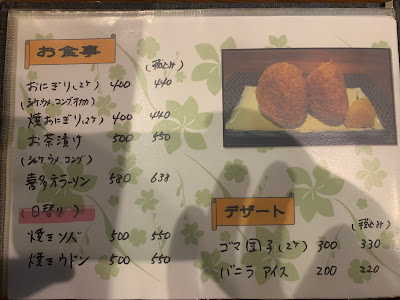 お食事
(税込み)
おにぎり(2ケ) 400 440
(シャケ,ウメ,コンブ,オカカ)
焼おにぎり(2ケ) 400 440
お茶漬け 500 550
(シャケ,ウメ,コンブ)
喜多方ラーメン 580 638
(日替り)
焼きソバ 500 550
焼きウドン 500 550
デザート
(税込み)
ゴマ団子(2ケ) 300 330
バニラアイス 200 220